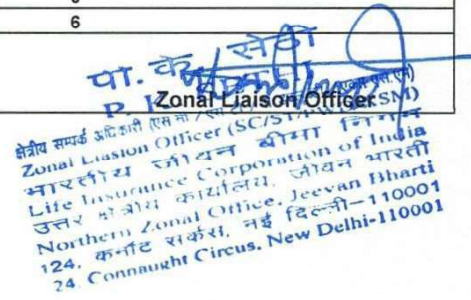 6
पा. के. सेठी
P. K.
Zonal Liaison Officer
क्षेत्रीय सम्पर्क अधिकारी
Zonal Liasion Officer (SC/ST/
भारतीय जीवन बीमा निगम
Life Insurance Corporation of India
उत्तर क्षेत्रीय कार्यालय, जीवन भारती
Northern Zonal Office, Jeevan Bharti
124, कनॉट सर्कस, नई दिल्ली-110001
24, Connaught Circus, New Delhi-110001